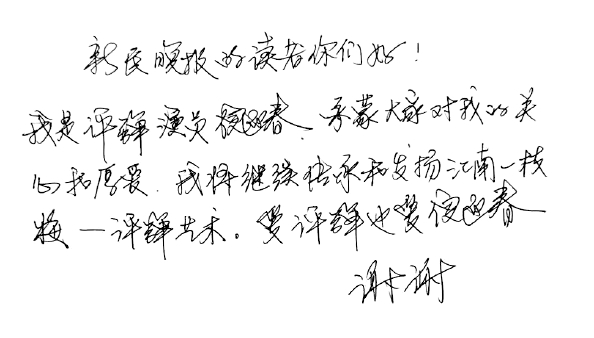 新民晚报的读者你们好！
我是评弹演员倪迎春，承蒙大家对我的关
心和厚爱．我将继续传承和发扬江南一枝
梅—评弹艺术。爱评弹也爱倪迎春
谢谢